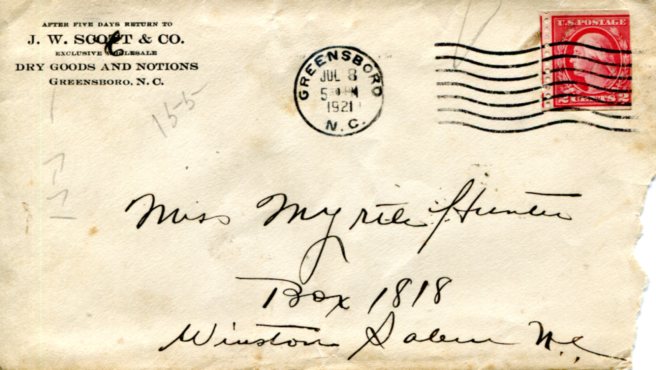 AFTER FIVE DAYS RETURN TO
J. W. SCOTT & CO.
EXCLUSIVE WHOLESALE
DRY GOODS AND NOTIONS
GREENSBORO, N. C.
GREENSBORO
JUL 8
5 M
1921
N. C.
U.S. POSTAGE
2 CENTS 2
15-5
Miss Myrtle Hunter
Box 1818
Winston Salem N.C.